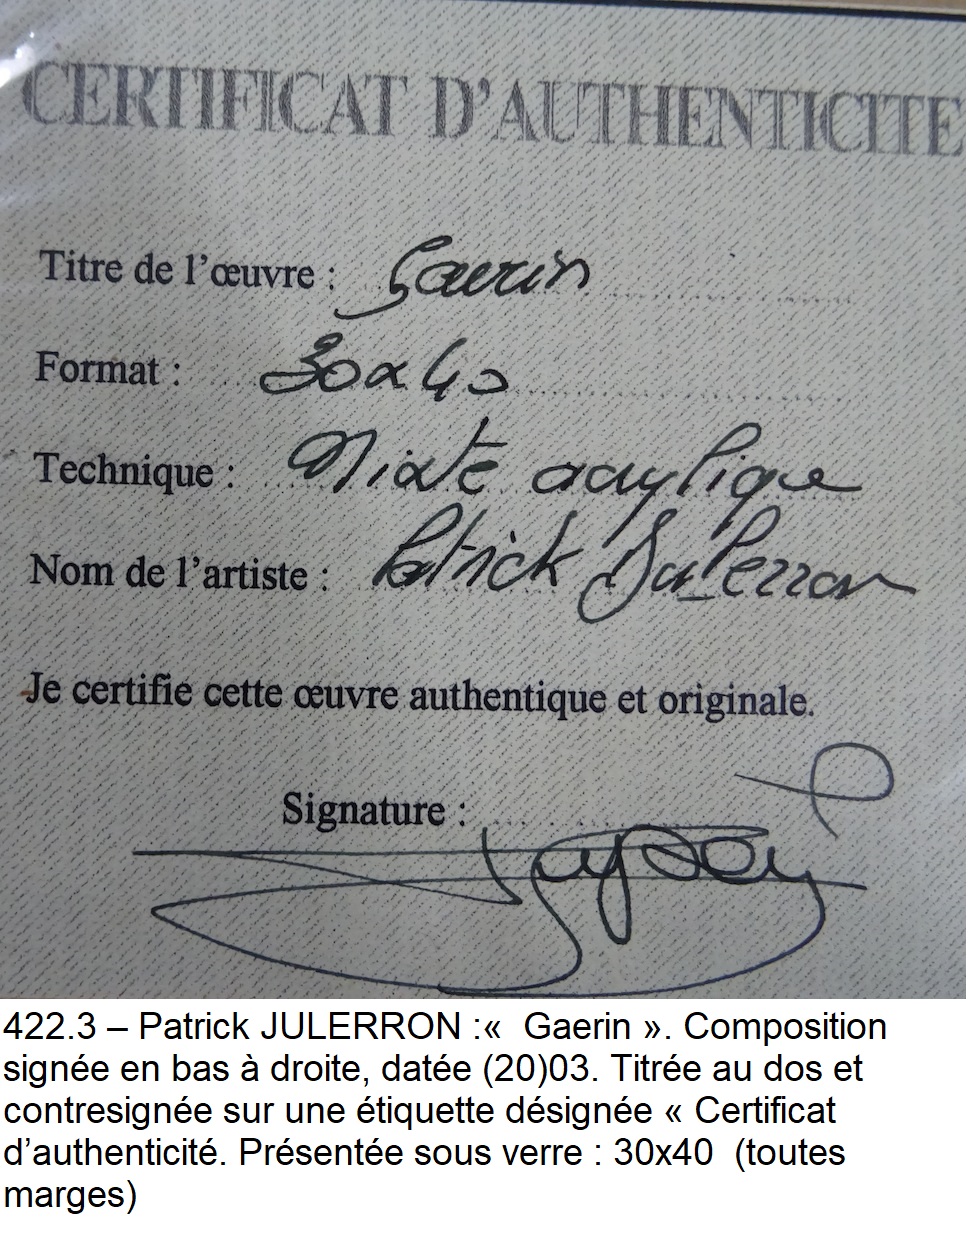 CERTIFICAT D'AUTHENTICITE
Titre de l'œuvre : Gaerin
Format : 30x40
Technique : Mixte acrylique
Nom de l'artiste : Patrick
Je certifie cette œuvre authentique et originale.
Signature :
422.3 – Patrick JULERRON :«  Gaerin ». Composition
signée en bas à droite, datée (20)03. Titrée au dos et
contresignée sur une étiquette désignée « Certificat
d’authenticité. Présentée sous verre : 30x40  (toutes
marges)